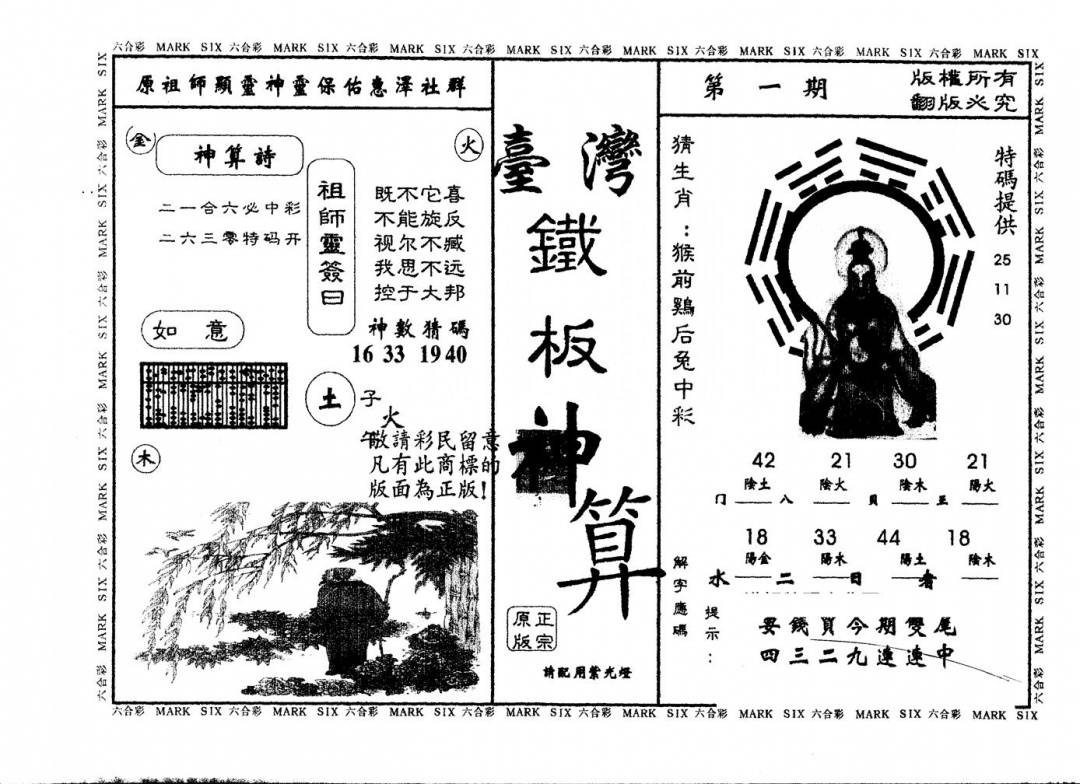 六合彩 MARK SIX 六合彩 MARK SIX 六合彩 MARK SIX 六合彩 MARK SIX 六合彩 MARK SIX 六合彩 MARK SIX 六合彩 MARK SIX 六合彩 MARK SIX
原祖師顯靈神靈保佑惠澤社群
金
火
神算詩
二一合六必中彩
二六三零特码开
祖師靈簽曰
既不它喜
不能旋反
视尔不臧
我思不远
控于大邦
神數猜碼
16 33 19 40
如意
土
子
火
午
敬請彩民留意
凡有此商標的
版面為正版!
木
臺灣
鐵
板
神
算
正宗
原版
請配用紫光燈
第一期
版權所有
翻版必究
猜生肖:猴前鷄后兔中彩
特碼提供
25
11
30
42 21 30 21
陰土 陰火 陰木 陽火
八
18 33 44 18
陽金 陽木 陽土 陰木
水 二 日 者
解字應碼
提示:
要錢買今期雙尾
四三二九連連中
六合彩 MARK SIX 六合彩 MARK SIX 六合彩 MARK SIX 六合彩 MARK SIX 六合彩 MARK SIX 六合彩 MARK SIX 六合彩 MARK SIX 六合彩 MARK SIX